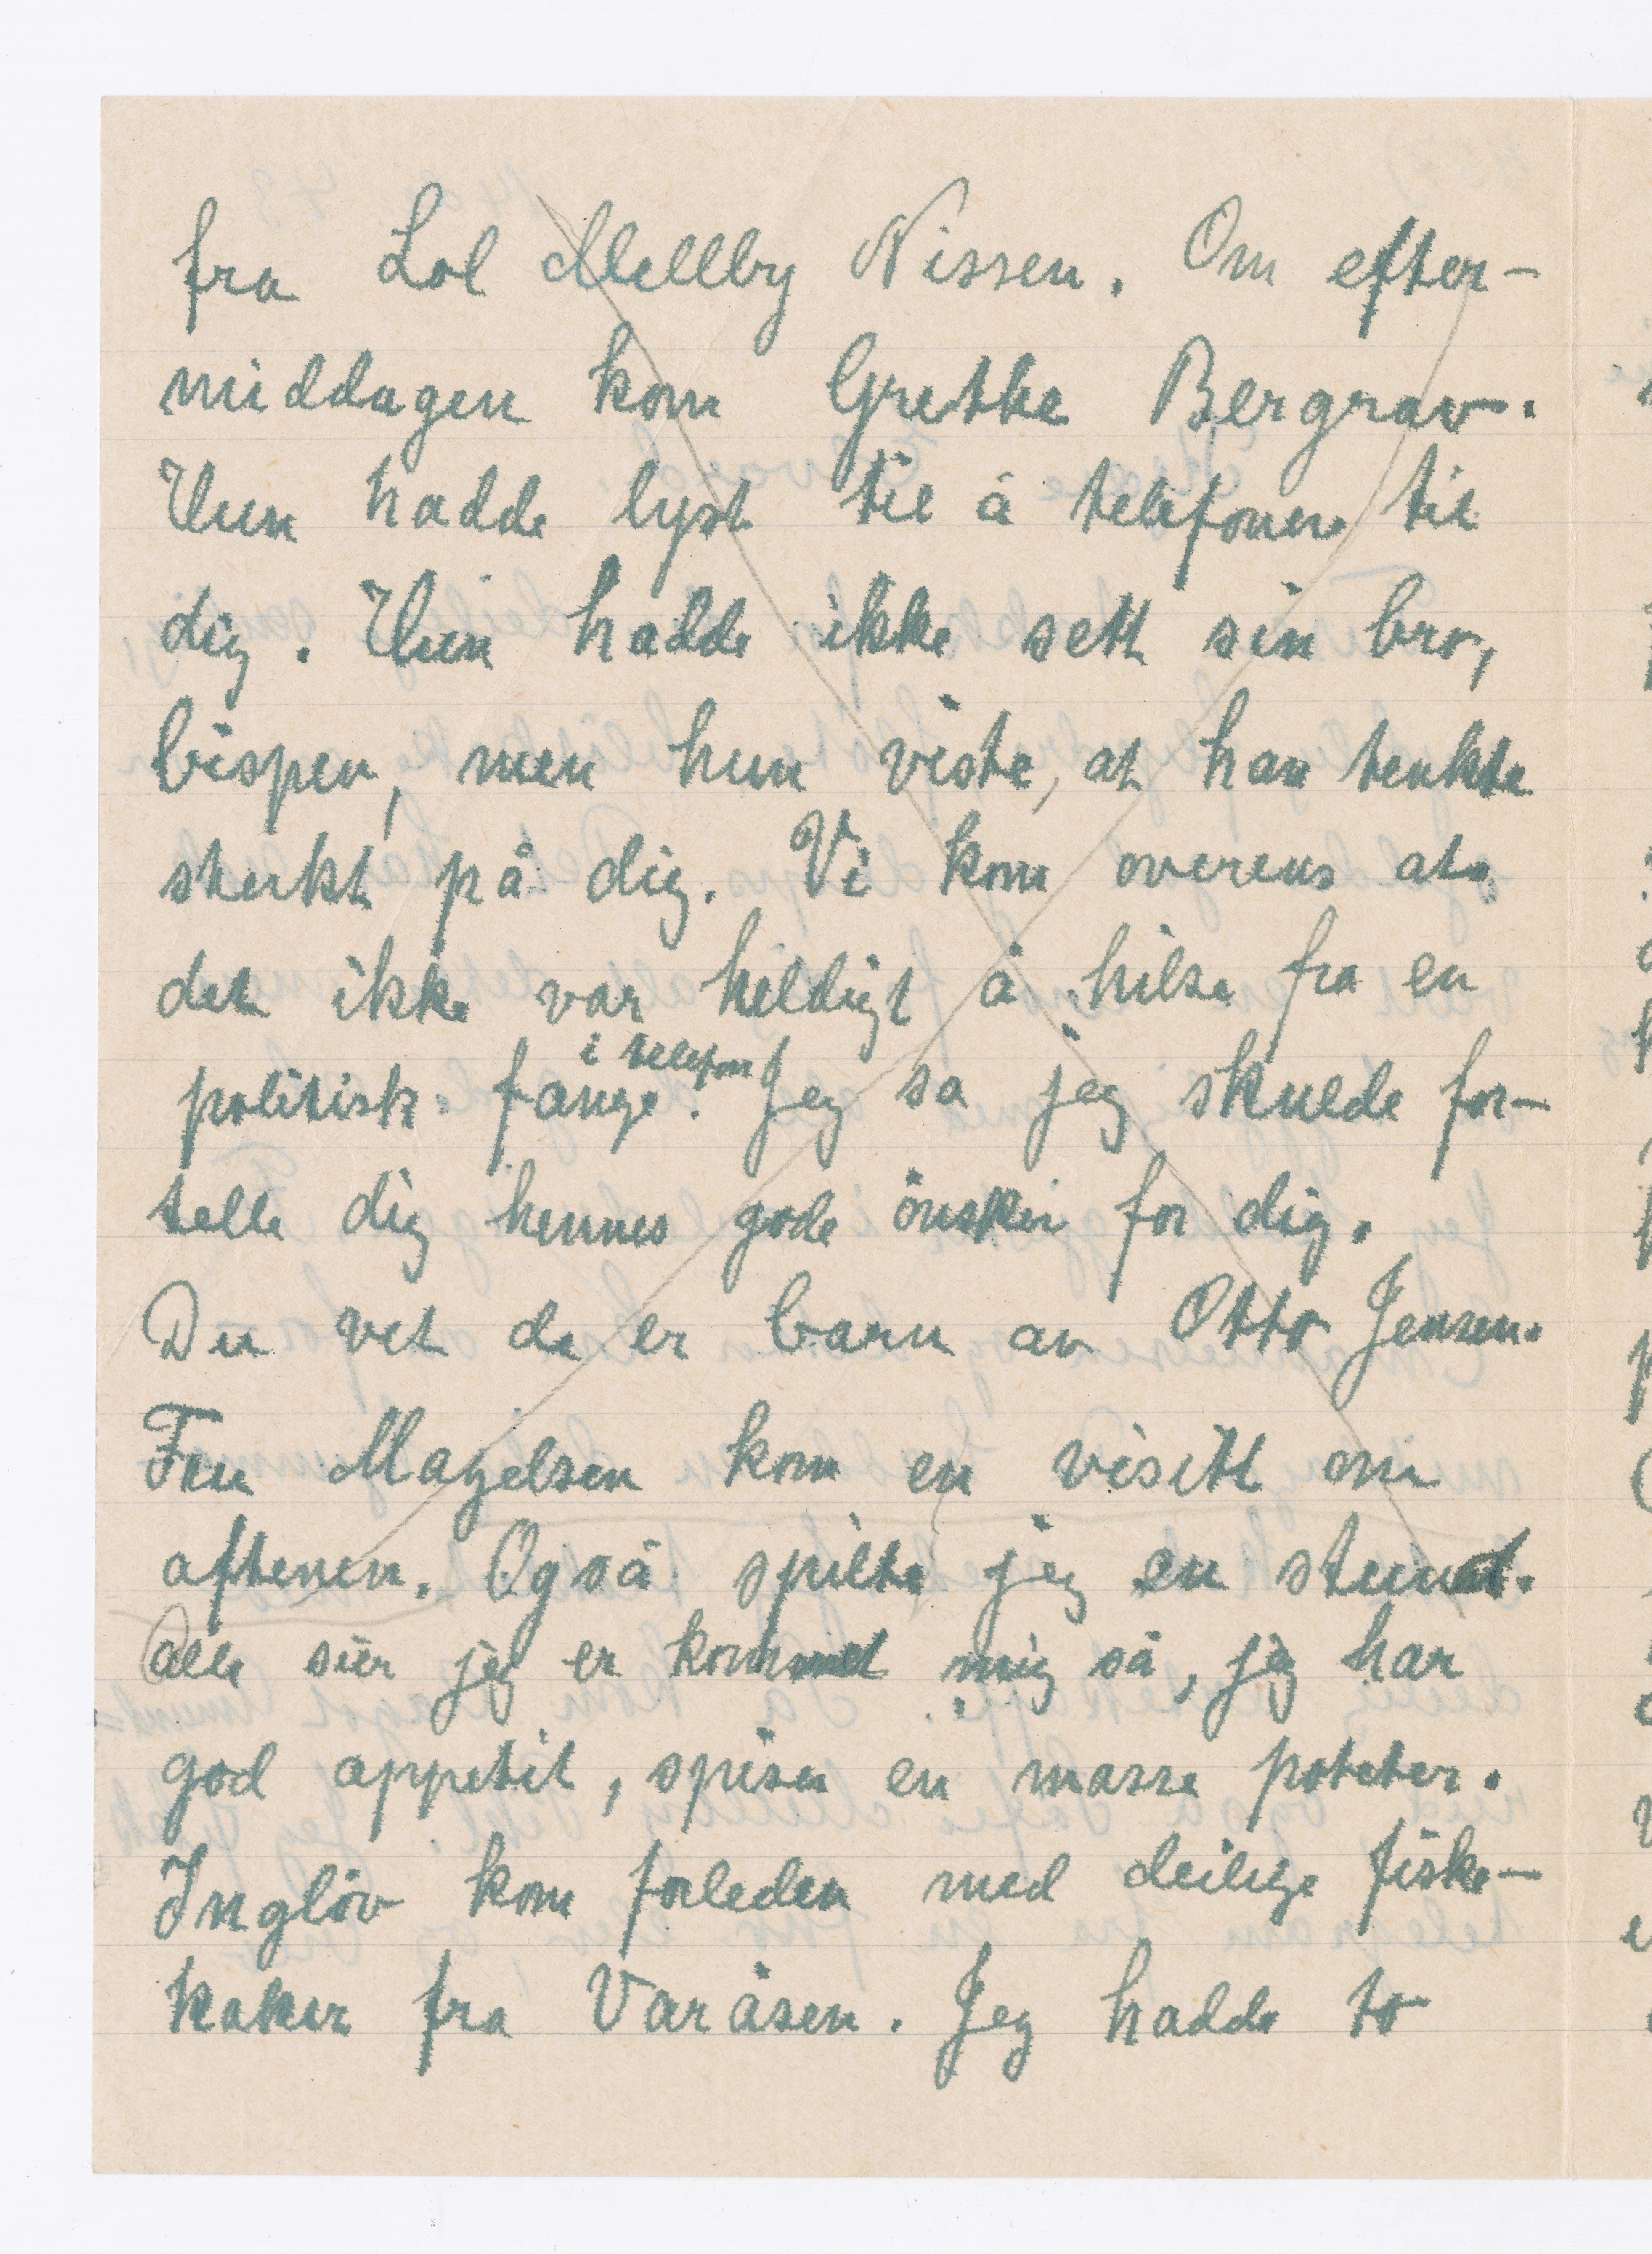 fra Lol Mellby Nissen. Om efter-
middagen kom Grethe Bergrav.
Hun hadde lyst til å telefonere til
dig. Hun hadde ikke sett sin bror,
bispen, men hun viste, at han tenkte
sterkt på dig. Vi kom overens at
det ikke var heldigt å hilse fra en
i telefon
politisk fange. Jeg sa jeg skulde for-
telle dig hennes gode önsker for dig.
Du vet de er barn av Otto Jensen.
Fru Magelsen kom en visitt om
aftenen. Også spilte jeg en stund.
Alle sier jeg er kommet mig så, jeg har
god appetit, spiser en masse poteter.
Inglöv kom forleden med deilige fiske-
kaker fra Varåsen. Jeg hadde to